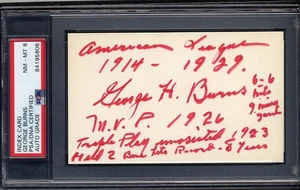 NM - MT 8
84195806
PSA
INDEX CARD
GEORGE BURNS
PSA/DNA CERTIFIED
AUTO GRADE
American League
1914 - 1929.
George H. Burns
6-6
hits
9 inning
game
M.V.P. 1926
Triple Play unassisted 1923
Held 2 Base hits Record - 8 Years